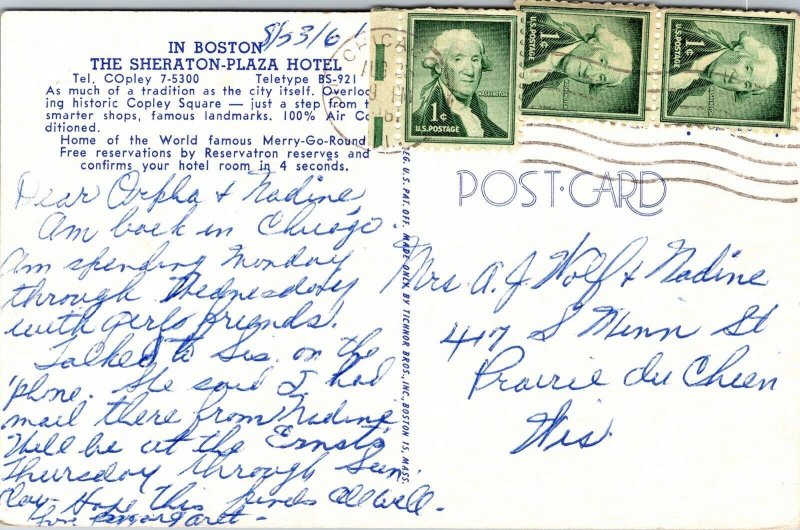 8/23/61
IN BOSTON
THE SHERATON-PLAZA HOTEL
Tel. COpley 7-5300 Teletype BS-921
As much of a tradition as the city itself. Overlook-
ing historic Copley Square — just a step from t
smarter shops, famous landmarks. 100% Air Co
ditioned.
Home of the World famous Merry-Go-Round
Free reservations by Reservatron reserves and
confirms your hotel room in 4 seconds.
Dear Orpha & Nadine,
Am back in Chicago.
Am spending Monday
through Wednesday
with girls friends.
Talked to Sis. on the
'phone. She said I had
mail there from Nadine.
Will be at the Ernsts
Thursday through Sun-
day. Hope this finds all well.
Love Margaret -
U.S. PAT. OFF. MADE ONLY BY TICHNOR BROS., INC., BOSTON 15, MASS.
WASHINGTON
1¢
U.S. POSTAGE
1¢
U.S. POSTAGE
1¢
U.S. POSTAGE
POST CARD
Mrs. A. J. Wolf & Nadine
417 S Minn St
Prairie du Chien
Wis.